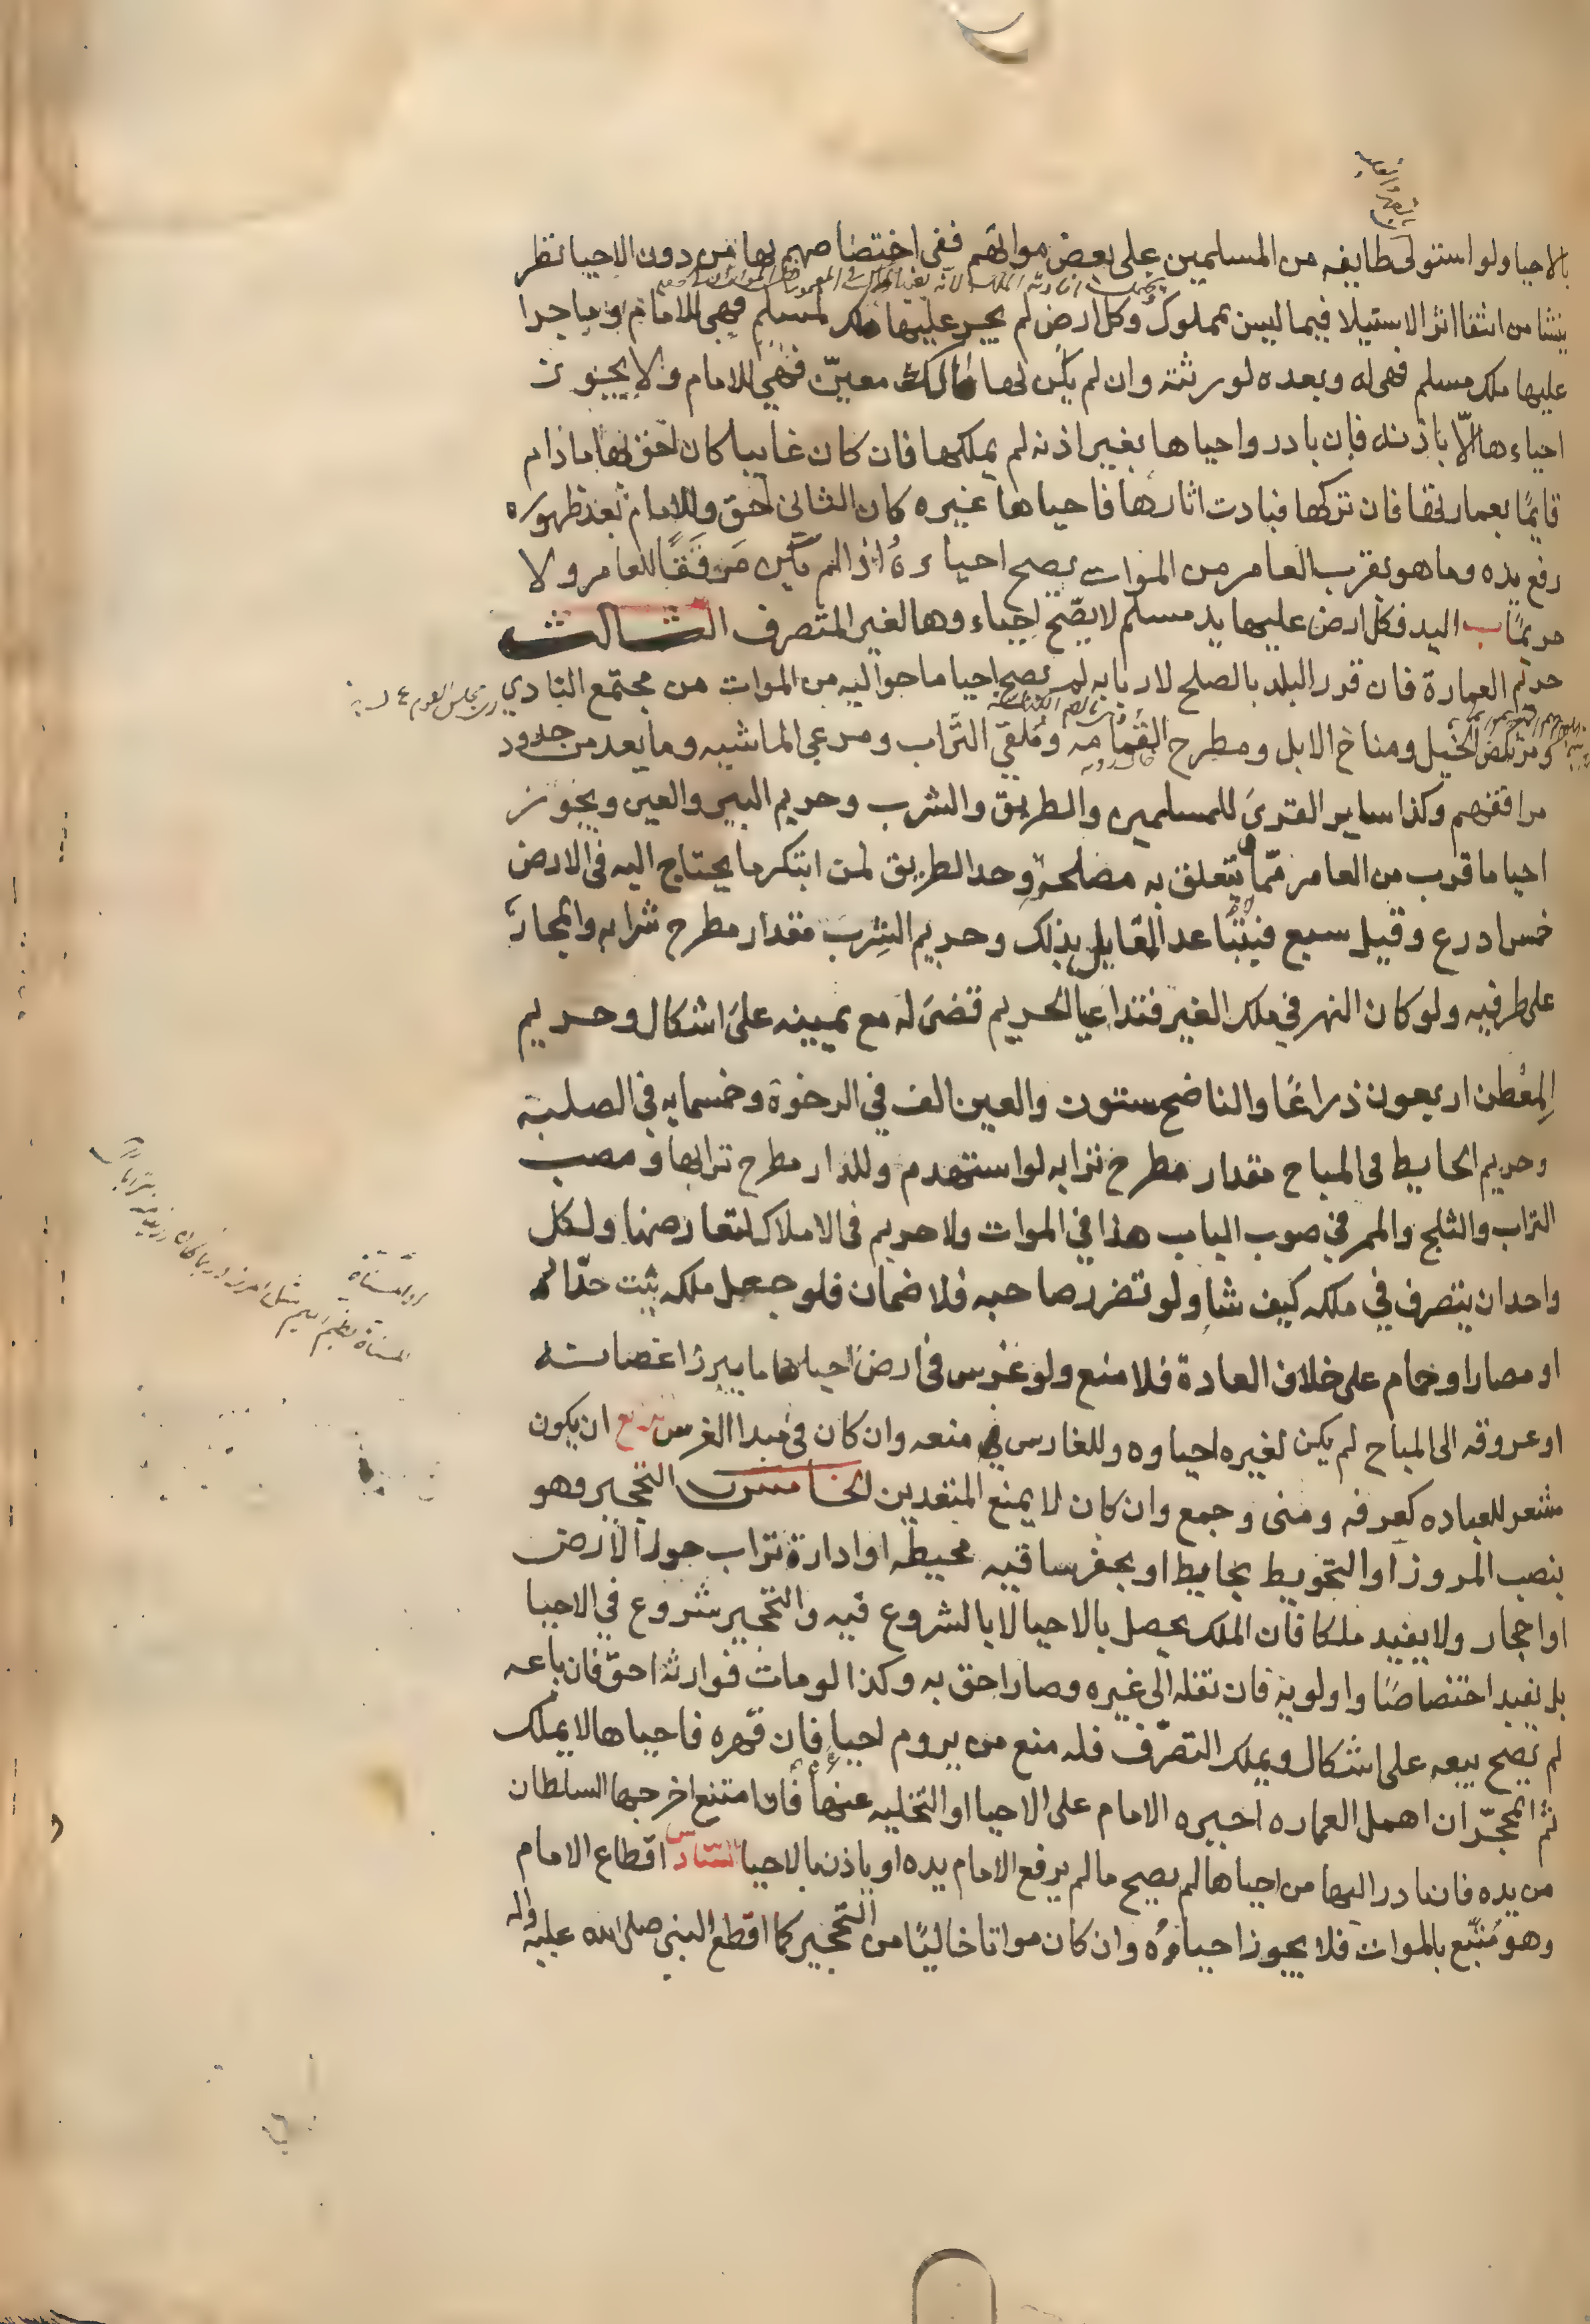 بالاحيا ولو استولى طايفه من المسلمين على بعض مواتهم ففى اختصاصهم بها من دون الاحيا نظر
ينشا من انتفا اثر الاستيلا فيما ليس بمملوك وكل ارض لم يجر عليها ملك لمسلم فهى للامام وما جرا
عليها ملك مسلم فهى له وبعده لورثته وان لم يكن لها مالك معيّن فهى للامام ولا يجوز
احياءها الّا باذنه فان بادر واحياها بغير اذنه لم يملكها فان كان غايبا كان احق بها ما دام
قايمًا بعمارتها فان تركها فبادت اثارها فاحياها غيره كان الثانى احق وللامام بعد ظهوره
رفع يده وما هو بقرب العامر من الموات يصح احياءه اذا لم يكن مرفقًا للعامر ولا
حريمًا ب اليد فكل ارض عليها يد مسلم لا يصّح احياءوها لغير المتصرف الثالث
حريم العمارة فان قرر البلد بالصلح لاربابه لم يصح احيا ما حواليه من الموات من مجتمع النادي
ومرتكض الخيل ومناخ الابل ومطرح القمامه وملقى التراب ومرعى الماشيه وما يعد من حدود
مرافقهم وكذا ساير القرى للمسلمين والطريق والشرب وحريم البير والعين ويجوز
احيا ما قرب من العامر ممّا لا يتعلق به مصلحته وحد الطريق لمن ابتكر ما يحتاج اليه فى الارض
خمس ادرع وقيل سبع فيتباعد المقابل بذلك وحريم الشرب مقدار مطرح ترابه والمجاز
على طرفيه ولو كان النهر في ملك الغير فتداعيا الحريم قضى له مع يمينه على اشكال وحريم
المعطن اربعون ذراعًا والناضح ستون والعين الف في الرخوة وخمسمايه في الصلبة
وحريم الحايط فى المباح مقدار مطرح ترابه لو استهدم وللدار مطرح ترابها ومصب
التراب والثلج والممر في صوب الباب هذا في الموات ولا حريم فى الاملاك لتعارضها ولكل
واحد ان يتصرف في ملكه كيف شا ولو تضرر صاحبه فلا ضمان فلو جعل ملكه بيت حدّاد
او مصارا وحمام على خلاف العادة فلا منع ولو غرس فى ارض احياها ما يبرز اغصانه
او عروقه الى المباح لم يكن لغيره احياوه وللغارس منعه وان كان في مبدا الغرس ان يكون
مشعر للعباده كعرفه ومنى وجمع وان كان لا يمنع المتعبدين الخامس التحجير وهو
بنصب المروز او التحويط بحايط او بحفر ساقيه محيطه او ادارة تراب حول الارض
او احجار ولا يفيد ملكا فان الملك يحصل بالاحيا لا بالشروع فيه والتحجير شروع في الاحيا
بل يفيد اختصاصًا واولوية فان نقله الى غيره وصار احق به وكذا لو مات فوارثه احق فان باعه
لم يصح بيعه على اشكال ويملك التصّرف فله منع من يروم احياء فان قهره فاحياها لا يملك
ثم المحجّر ان اهمل العماره اجبره الامام على الاحيا او التخليه عنها فان امتنع اخرجها السلطان
من يده فان بادر اليها من احياها لم يصح ما لم يرفع الامام يده او ياذن بالاحيا السادس اقطاع الامام
وهو متّبع بالموات فلا يجوز احياؤه وان كان مواتا خاليًا من التحجير كما اقطع النبى صلى الله عليه واله